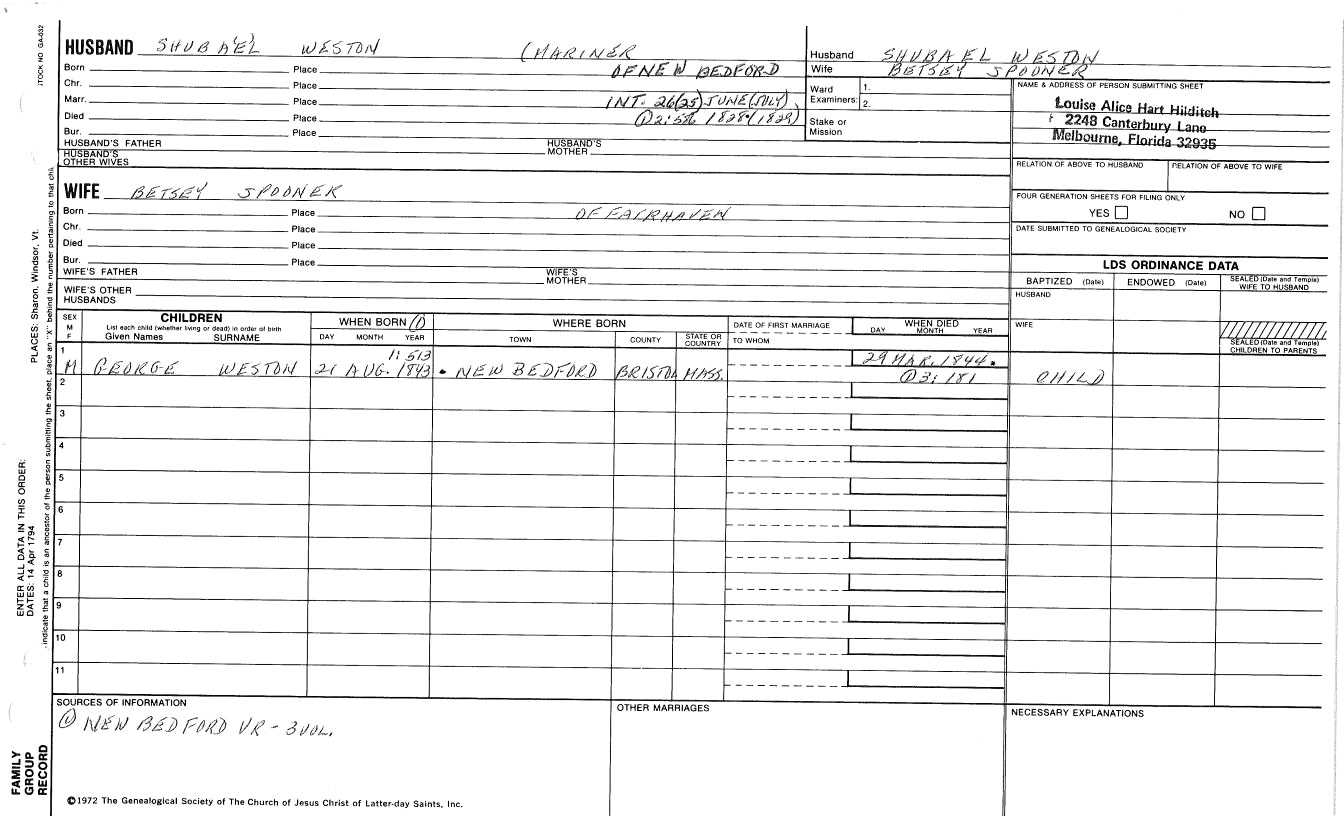 STOCK NO GA-032
HUSBAND SHUBA(E)L WESTON (MARINER
Born Place OF NEW BEDFORD
Chr. Place
Marr. Place INT. 26(25) JUNE (JULY)
Died Place ① 2:586 1828 (1829)
Bur. Place
HUSBAND'S FATHER HUSBAND'S MOTHER
HUSBAND'S OTHER WIVES
Husband SHUBAEL WESTON
Wife BETSEY SPOONER
Ward Examiners: 1.
2.
Stake or Mission
NAME & ADDRESS OF PERSON SUBMITTING SHEET
Louise Alice Hart Hilditch
2248 Canterbury Lane
Melbourne, Florida 32935
RELATION OF ABOVE TO HUSBAND RELATION OF ABOVE TO WIFE
FOUR GENERATION SHEETS FOR FILING ONLY
YES NO
DATE SUBMITTED TO GENEALOGICAL SOCIETY
WIFE BETSEY SPOONER
Born Place OF FAIRHAVEN
Chr. Place
Died Place
Bur. Place
WIFE'S FATHER WIFE'S MOTHER
WIFE'S OTHER HUSBANDS
LDS ORDINANCE DATA
BAPTIZED (Date) ENDOWED (Date) SEALED (Date and Temple) WIFE TO HUSBAND
HUSBAND
WIFE
SEALED (Date and Temple) CHILDREN TO PARENTS
SEX M F
CHILDREN
List each child (whether living or dead) in order of birth
Given Names SURNAME
WHEN BORN ①
DAY MONTH YEAR
WHERE BORN
TOWN COUNTY STATE OR COUNTRY
DATE OF FIRST MARRIAGE
TO WHOM
WHEN DIED
DAY MONTH YEAR
1 1:513 29 MAR. 1844.
M GEORGE WESTON 21 AUG. 1843 • NEW BEDFORD BRISTOL MASS. ① 3:181 CHILD
2
3
4
5
6
7
8
9
10
11
SOURCES OF INFORMATION
① NEW BEDFORD VR - 3 VOL.
OTHER MARRIAGES
NECESSARY EXPLANATIONS
©1972 The Genealogical Society of The Church of Jesus Christ of Latter-day Saints, Inc.
FAMILY GROUP RECORD
ENTER ALL DATA IN THIS ORDER:
DATES: 14 Apr 1794
PLACES: Sharon, Windsor, Vt.
indicate that a child is an ancestor of the person submitting the sheet, place an "X" behind the number pertaining to that chi